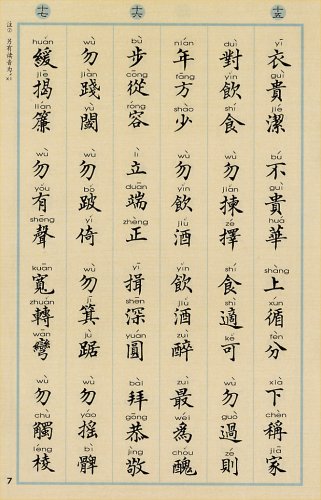 十五
yī guì jié bú guì huá shàng xún fèn xià chèn jiā
衣貴潔 不貴華 上循分 下稱家
duì yǐn shí wù jiǎn zé shí shì kě wù guò zé
對飲食 勿揀擇 食適可 勿過則
nián fāng shào wù yǐn jiǔ yǐn jiǔ zuì zuì wéi chǒu
年方少 勿飲酒 飲酒醉 最為醜
十六
bù cōng róng lì duān zhèng yī shēn yuán bài gōng jìng
步從容 立端正 揖深圓 拜恭敬
wù jiàn yù wù bǒ yǐ wù jī jù wù yáo bì
勿踐閾 勿跛倚 勿箕踞 勿搖髀
十七
huǎn jiē lián wù yǒu shēng kuān zhuǎn wān wù chù léng
緩揭簾 勿有聲 寬轉彎 勿觸棱
另有读音为
7